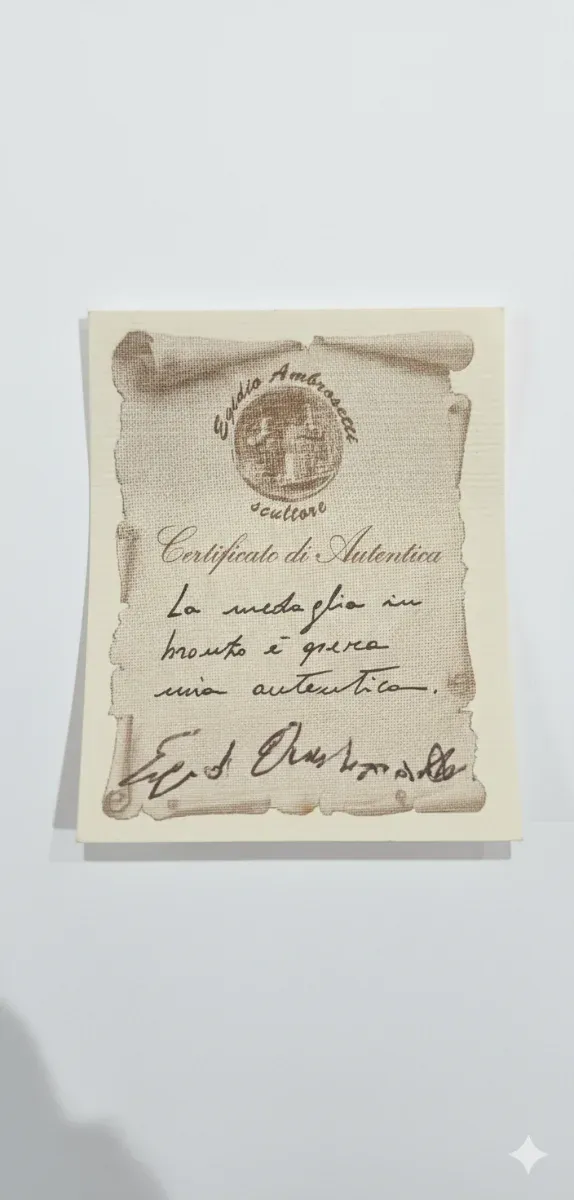 Egidio Ambrosetti
scultore
Certificato di Autentica
La medaglia in
bronzo è opera
mia autentica.